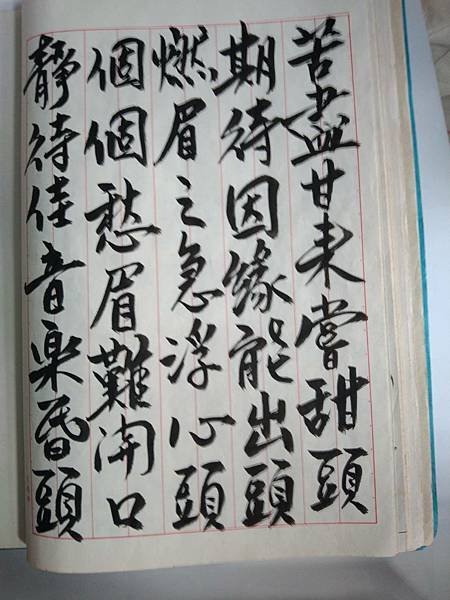 苦盡甘来嘗甜頭
期待因缘能出頭
燃眉之急浮心頭
個個愁眉難開口
靜待佳音樂昏頭